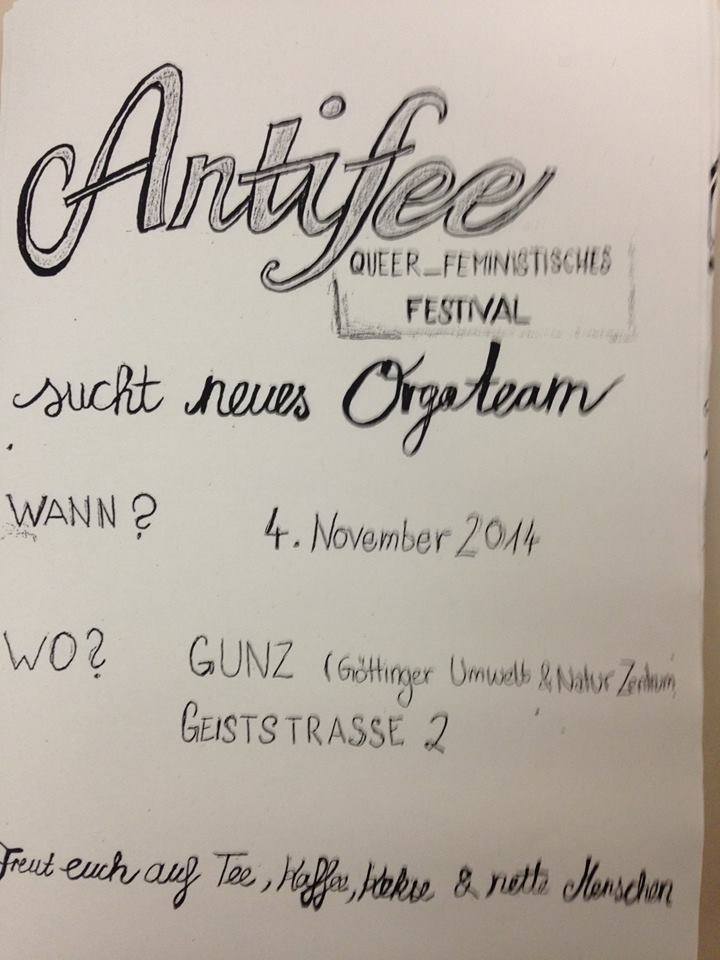 Antifee
QUEER_FEMINISTISCHES
FESTIVAL
sucht neues Orgateam
WANN? 4. November 2014
WO? GUNZ (Göttinger Umwelt & Natur Zentrum
GEISTSTRASSE 2
Freut euch auf Tee, Kaffee, Kekse & nette Menschen